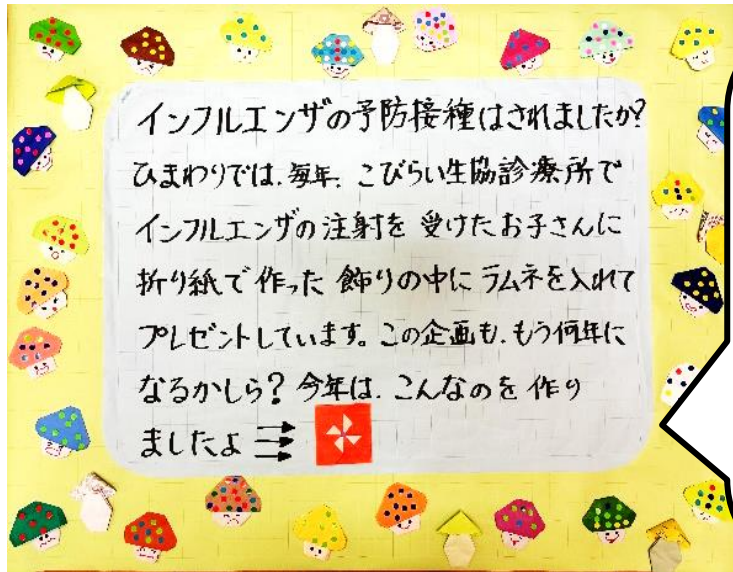 インフルエンザの予防接種はされましたか?
ひまわりでは、毎年、こびらい生協診療所で
インフルエンザの注射を受けたお子さんに
折り紙で作った飾りの中にラムネを入れて
プレゼントしています。この企画も、もう何年に
なるかしら?今年は、こんなのを作り
ましたよ